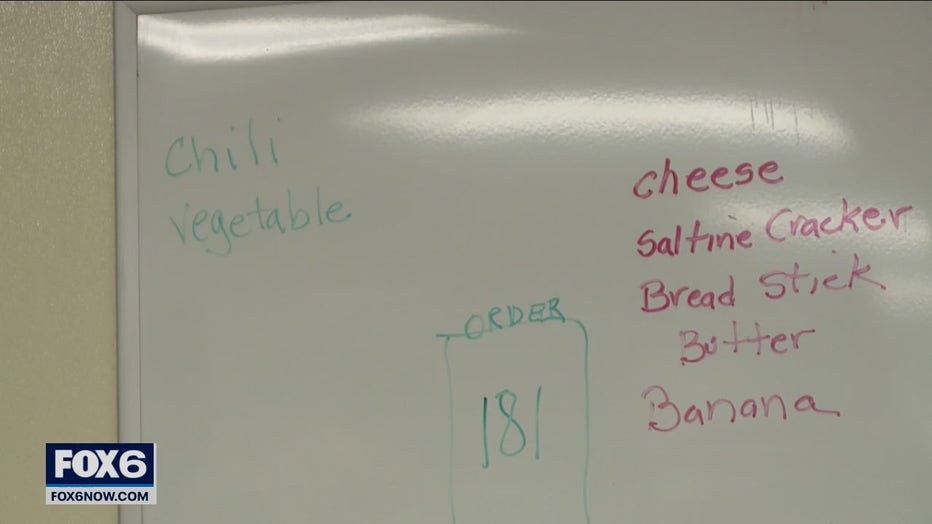 Chili
vegetable
cheese
Saltine Cracker
Bread Stick
Butter
Banana
ORDER
181
FOX6
FOX6NOW.COM